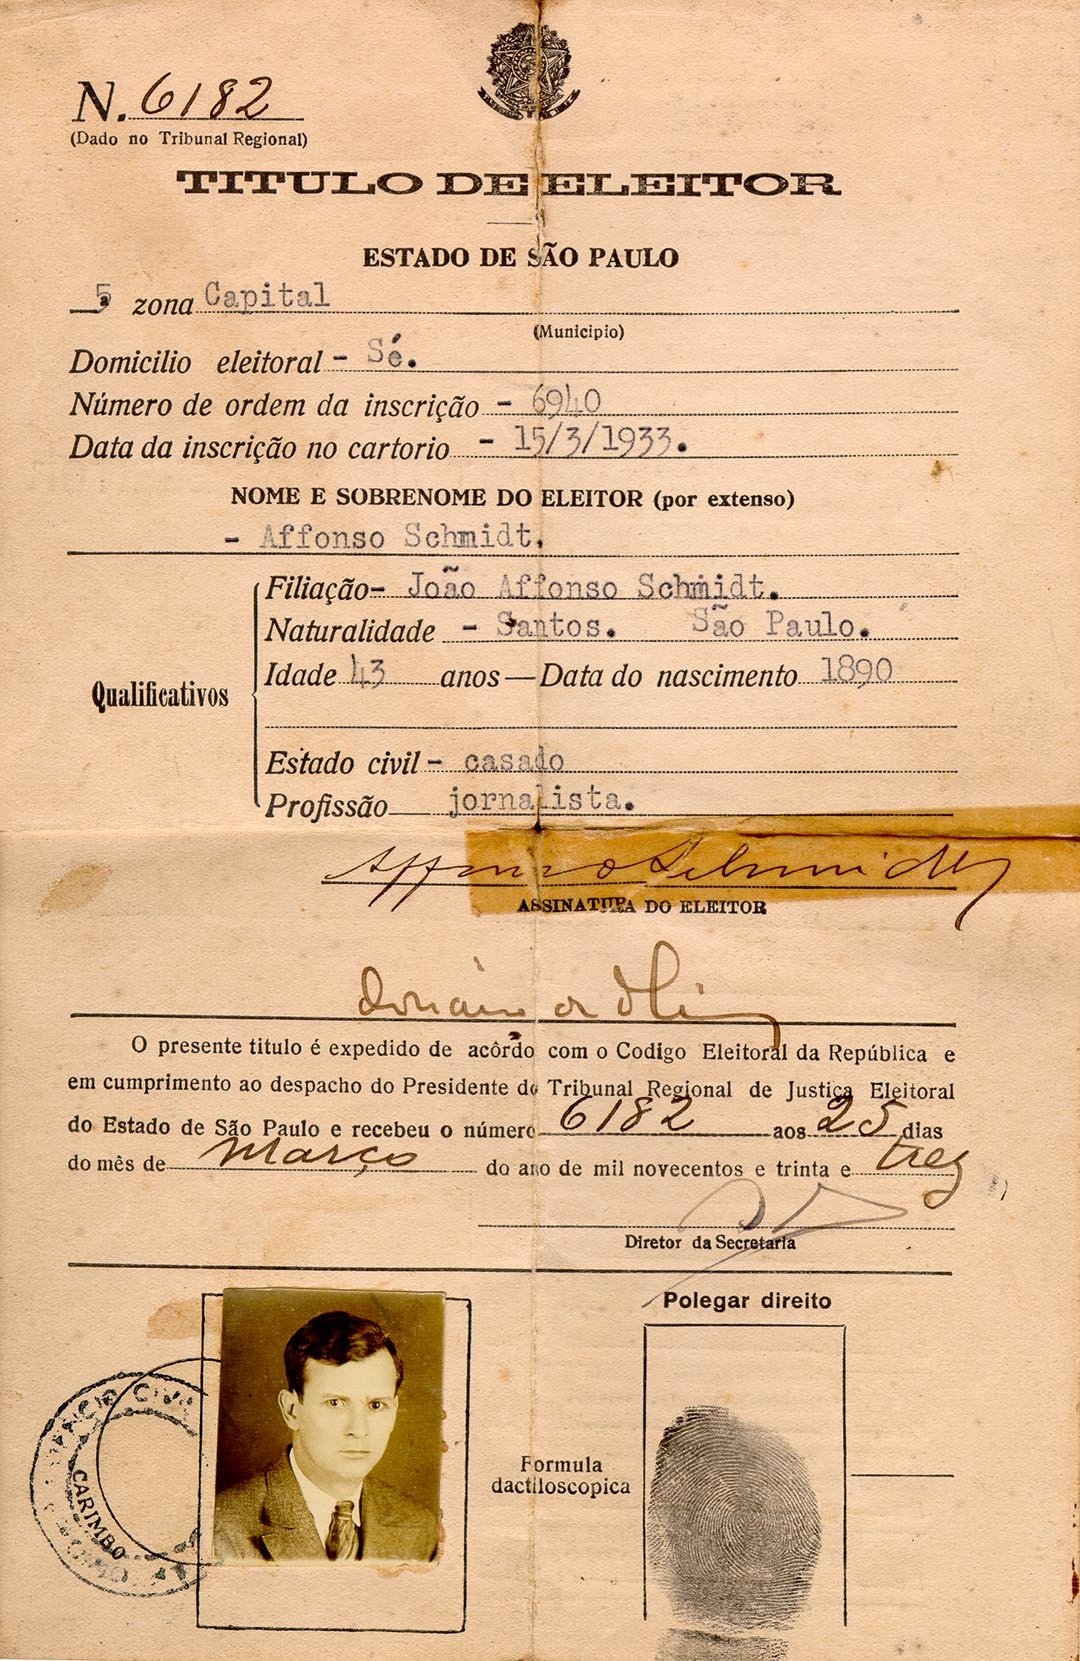 N. 6182
(Dado no Tribunal Regional)
TITULO DE ELEITOR
ESTADO DE SÃO PAULO
5ª zona Capital
(Municipio)
Domicilio eleitoral - Sé.
Número de ordem da inscrição - 6940
Data da inscrição no cartorio - 15/3/1933.
NOME E SOBRENOME DO ELEITOR (por extenso)
- Affonso Schmidt.
Filiação- João Affonso Schmidt.
Naturalidade - Santos. São Paulo.
Idade 43 anos—Data do nascimento 1890
Qualificativos
Estado civil - casado
Profissão jornalista.
Affonso Schmidt
ASSINATURA DO ELEITOR
O presente titulo é expedido de acôrdo com o Codigo Eleitoral da República e
em cumprimento ao despacho do Presidente do Tribunal Regional de Justiça Eleitoral
do Estado de São Paulo e recebeu o número 6182 aos 25 dias
do mês de março do ano de mil novecentos e trinta e tres
Diretor da Secretaria
Polegar direito
CARIMBO
Formula
dactiloscopica